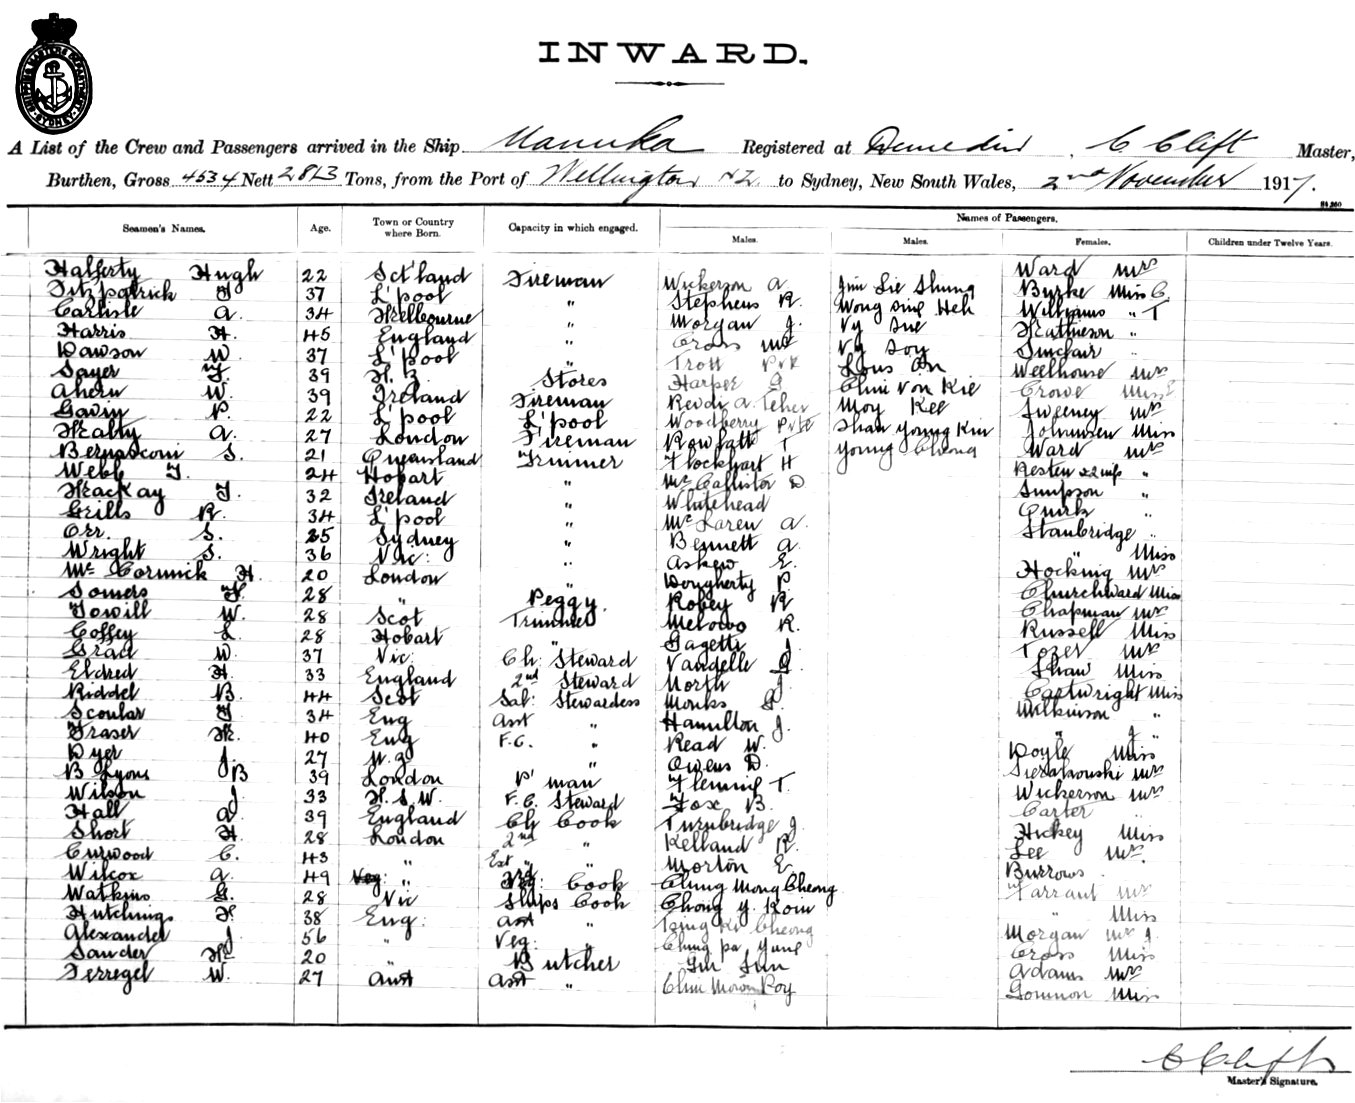 SHIPPING MASTERS DEPARTMENT SYDNEY
INWARD.
A List of the Crew and Passengers arrived in the Ship Manuka Registered at Dunedin, C Clift Master,
Burthen, Gross 4534 Nett 2813 Tons, from the Port of Wellington NZ to Sydney, New South Wales, 2nd November 1917.
Names of Passengers.
Seamen's Names. Age. Town or Country where Born. Capacity in which engaged. Males. Males. Females. Children under Twelve Years.
Halferty Hugh 22 Sct'land Fireman Wickerson A. Ward Mrs
Fitzpatrick 37 L'pool " Stephens R. Byrke Miss C
Carlisle A. 34 Melbourne " Morgan J. Wong Sing Heh Williams " T
Harris H. 45 England " Cross Mr Vy Sue Mathieson "
Dawson W. 37 L'pool " Trott Pvte Vy Soy Sinclair "
Sayer 39 N.Z. Stores Harper G Weelhouse Mrs
Ahern W. 39 Ireland Fireman Chin Von Kie Crowe Miss E
Gavin P. 22 L'pool L'pool Woodberry Pvte Moy Kee Sweeney Mrs
Mealty A. 27 London Fireman Rowfatt T Shan Young Kin Johansen Miss
Bernasconi S. 21 Queensland Trimmer Flockhart H Young Cheong Ward Mrs
Webb 24 Hobart " McCallister D
MacKay 32 Ireland " Whitehead Simpson "
Grills R. 34 L'pool " McLaren A. Quirk "
Orr. S. 25 Sydney " Bennett A. Stanbridge "
Wright S. 36 Vic: " Askew E. " Miss
McCormick H. 20 London " Dougherty P. Hocking Mrs
Somers 28 " Peggy. Robey R Churchward Miss
Towill W. 28 Scot Trimmer R. Chapman Mrs
Coffey L. 28 Hobart " Gagetti J. Russell Miss
Grace W. 37 Vic: Ch: Steward Vandelle G Tozer Mrs
Eldred H. 33 England 2nd Steward North J. Shaw Miss
Riddel B. 44 Scot Sal: Stewardess Monks Cartwright Miss
Scoular 34 Eng Asst " Hamilton J. Wilkinson "
Fraser 40 Eng F.C. " Read W. " J "
Dyer J. 27 " Owens D. Doyle Miss
B Lyons B 39 London P'man Fleming T. Mrs
Wilson J 33 N.S.W. F.C. Steward Fox B. Wickerson Mrs
Hall A. 39 England Ch Cook Turnbridge J. Carter "
Short H. 28 London 2nd " Kelland R. Hickey Miss
Curwood C. 43 " Ext " " Morton E. Lee Mrs.
Wilcox G. 49 " Cook Chung Mong Cheong Burrows
Watkins G. 28 Vic Ships Cook Chong Y. Koin Farrant Mrs
Hutchings 38 Eng: Asst " Cheong " Miss
Alexander J. 56 " Veg: " Chung Pa Yung Morgan Mrs J
Sander 20 " Butcher Cross Miss
Ferregel W. 27 Aust Asst " Chin Roy Adams Mrs
Miss
C Clift
Master's Signature.